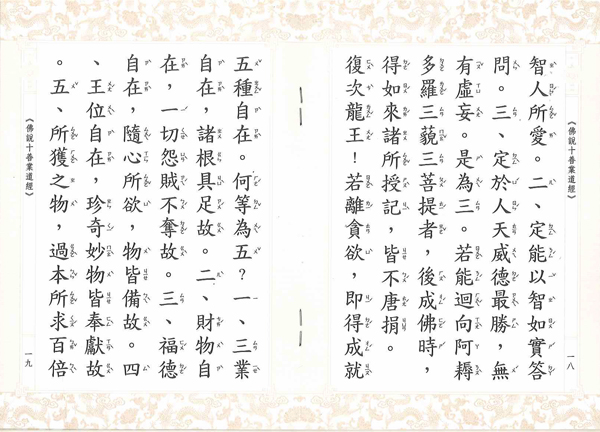 《佛說十善業道經》
智人所愛。二、定能以智如實答
問。三、定於人天威德最勝，無
有虛妄。是為三。若能迴向阿耨
多羅三藐三菩提者，後成佛時，
得如來諸所授記，皆不唐捐。
復次龍王！若離貪欲，即得成就
一八
五種自在。何等為五？一、三業
自在，諸根具足故。二、財物自
在，一切怨賊不奪故。三、福德
自在，隨心所欲，物皆備故。四
、王位自在，珍奇妙物皆奉獻故
。五、所獲之物，過本所求百倍
《佛說十善業道經》
一九